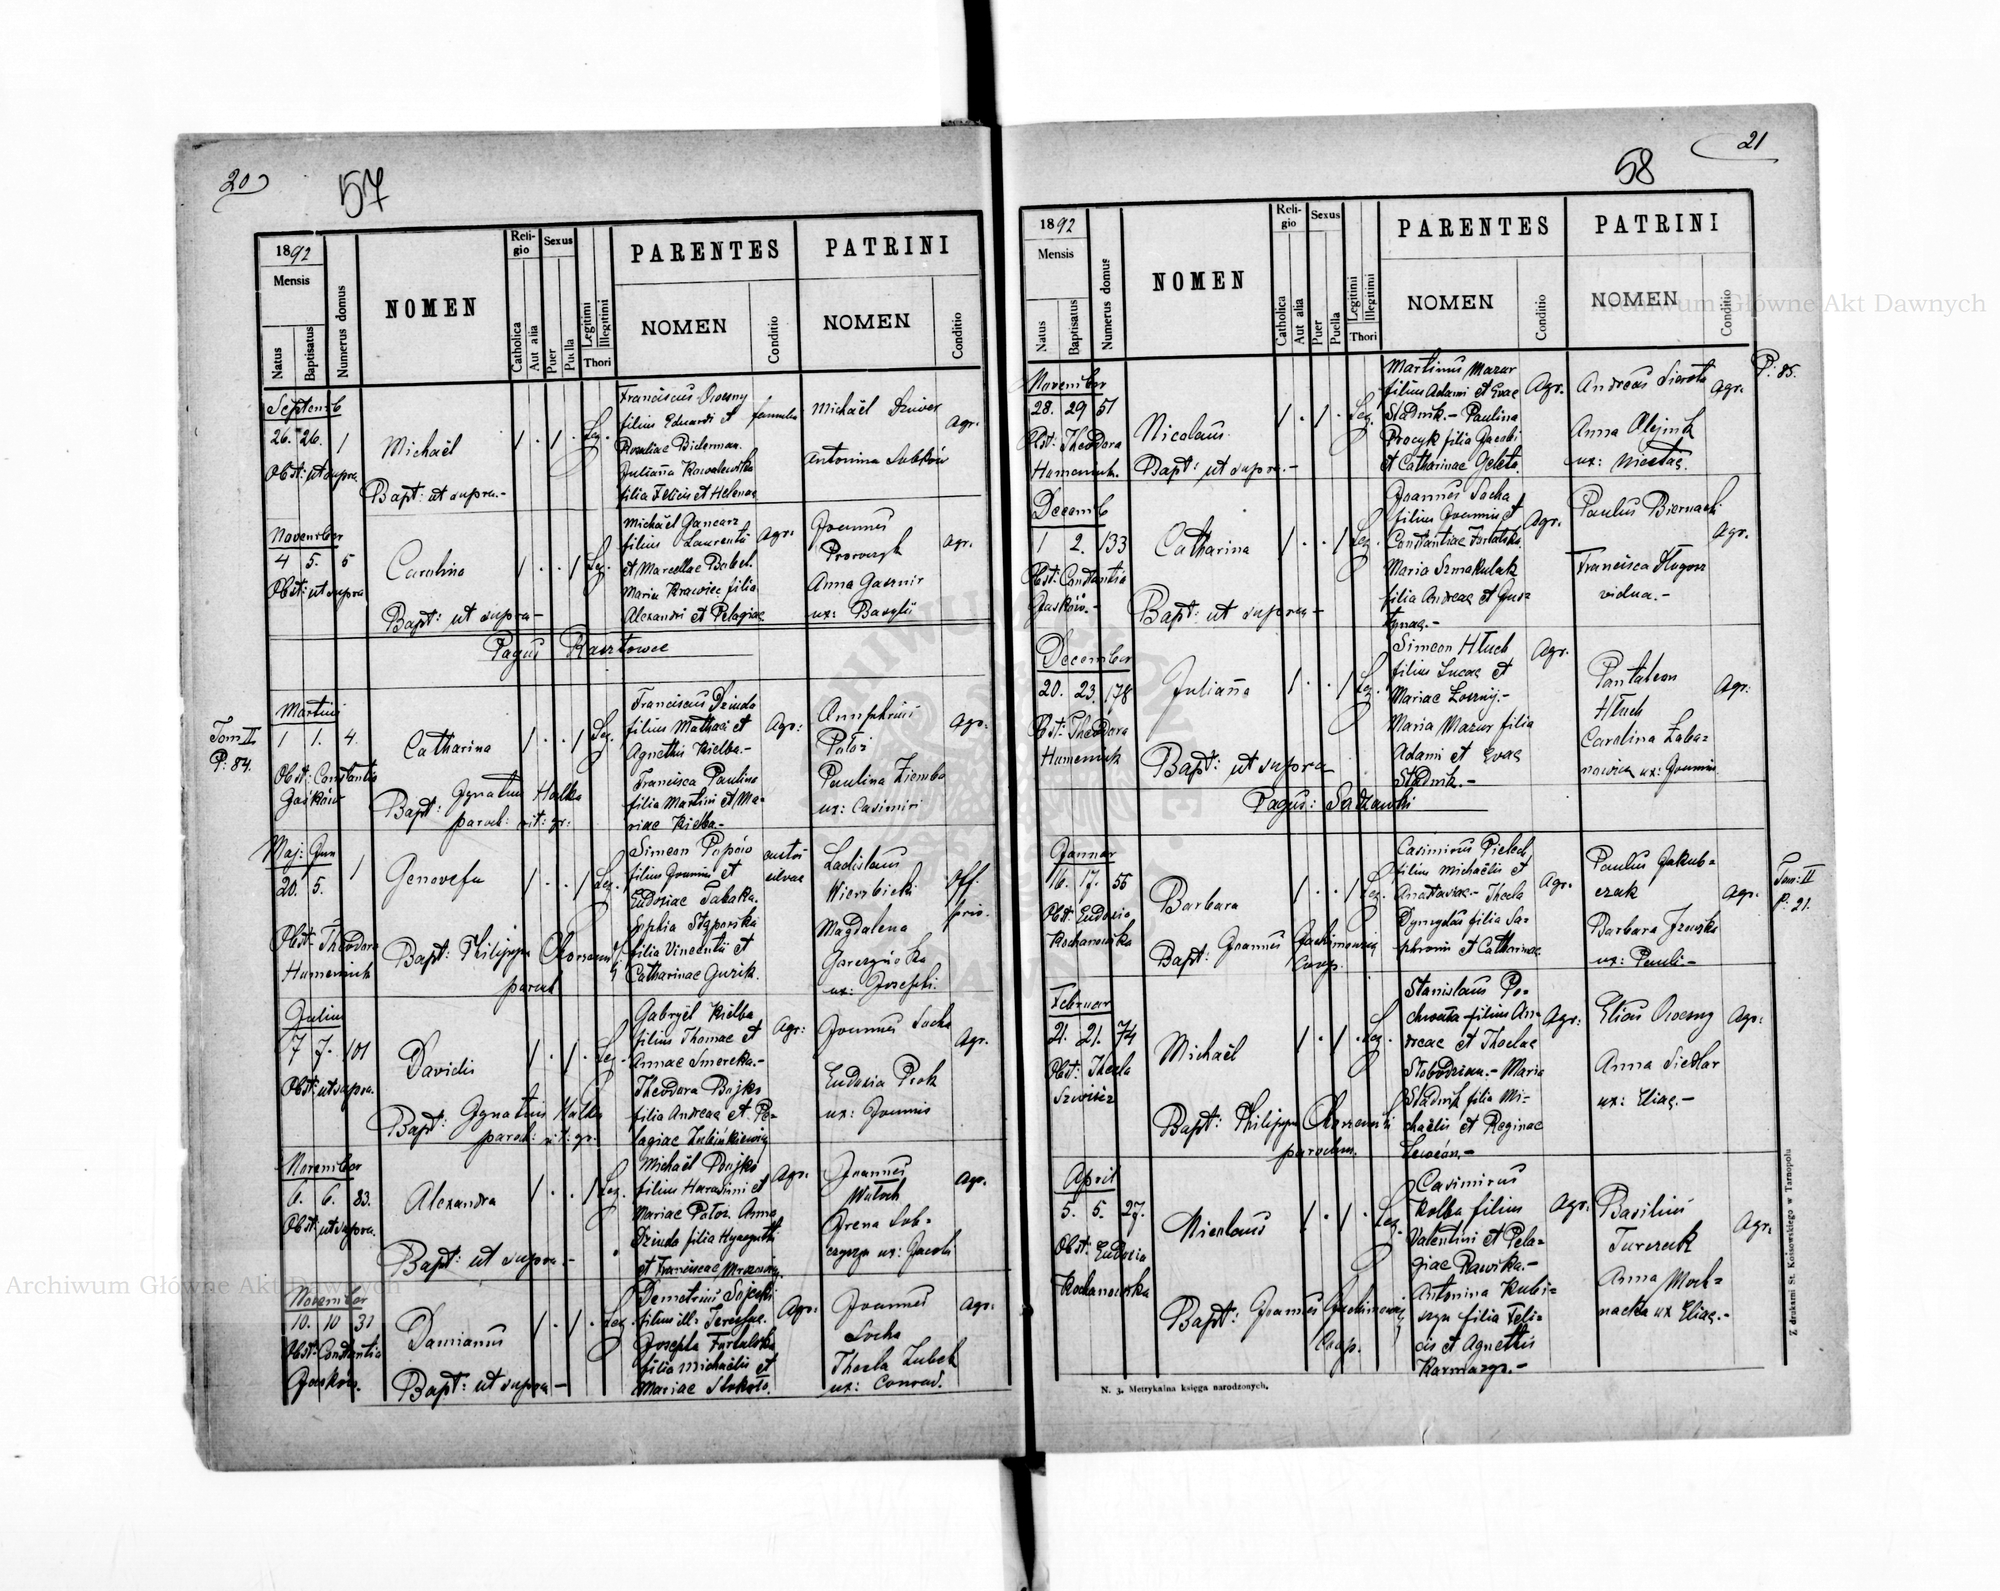 20
57
1892
Mensis
Natus
Baptisatus
Numerus domus
NOMEN
Religio
Catholica
Aut alia
Sexus
Puer
Puella
Legitimi
Illegitimi
Thori
PARENTES
NOMEN
Conditio
PATRINI
NOMEN
Conditio
Septemb
26. 26. 1
Michaël
1 . 1 . Leg.
Obst: ut supra
Bapt: ut supra.-
Franciscus
filius Eduardi et
Rosaliae Biderman.
Julianna Kowalewska
filia Felicis et Helenae
Michaël
Agr.
Antonina
November
4 5. 5
Carolina
1 . . 1 Leg.
Obst: ut supra
Bapt: ut supra-
Michaël Gancarz
filius Laurentii
et Marcellae Babel.
Maria Krawiec filia
Alexandri et Pelagiae
Agr.
Joannes
Anna
ux: Basylii
Agr.
Pagus Rasztowce
Tom II.
P. 84.
Martius
1 1. 4.
Catharina
1 . . 1 Leg.
Obst: Constantia
Gaśków
Bapt: Ignatius Halka
paroch: rit: gr:
Franciscus Dziuda
filius Mathaei et
Agnethis Kielba.-
Francisca Paulina
filia Martini et Ma-
riae Kielba.-
Agr:
Onuphrius
Potoz
Paulina Ziemba
ux: Casimiri
Agr.
Maj: Jun
20. 5. 1
Genovefa
1 . . 1 Leg.
Obst- Theodora
Humeniuk
Bapt: Philippus
paroch
Simeon Popów
filius Joannis et
Eudoxiae Tabaka.
Sophia
filia Vincentii et
Catharinae Guzik.
custos
silvae
Ladislaus
Wierzbicki
Magdalena
ux: Josephi.
Off.
priv.
Julius
7 7. 101
Davidis
1 . 1 . Leg.
Obst: ut supra.
Bapt: Ignatius Halka
paroch: rit: gr:
Gabryel Kielba
filius Thomae et
Annae Smereka.-
Theodora Bojko
filia Andreae et Pe-
lagiae
Agr:
Joannes Socha
Eudoxia Prok
ux: Joannis
Agr.
November
6. 6. 83.
Alexandra
1 . . 1 Leg.
Obst: ut supra.
Bapt: ut supra.-
Michaël Bojko
filius Harasimi et
Mariae Potoz. Anna
Dziuda filia Hyacynthi
et Franciscae
Agr.
Joannes
Irena
ux: Jacobi
Agr.
November
10. 10 31
Damianus
1 . 1 . Leg.
Obst: Constantia
Gaśków.
Bapt: ut supra-
Demetrius
filius ill: Teressae.
Josepha
filia Michaëlis et
Mariae
Agr.
Joannes
Socha
Thecla Zubek
ux: Conrad.
Agr.
21
58
1892
Mensis
Natus
Baptisatus
Numerus domus
NOMEN
Religio
Catholica
Aut alia
Sexus
Puer
Puella
Legitimi
Illegitimi
Thori
PARENTES
NOMEN
Conditio
PATRINI
NOMEN
Conditio
P. 85.
November
28. 29 51
Nicolaus
1 . 1 . Leg.
Obst: Theodora
Humeniuk.
Bapt: ut supra.-
Martinus Mazur
filius Adami et Evae
Stadnik.- Paulina
Procyk filia Jacobi
et Catharinae Geleta.
Agr.
Andreas Sierota
Anna Olejnik
ux: Nicetae.
Agr.
Decemb
1 2. 133
Catharina
1 . . 1 Leg.
Obst: Constantia
Gaśków.-
Bapt: ut supra-
Joannes Socha
filius Joannis et
Constantiae
Maria Szmakulak
filia Andreae et Jus-
tynae.-
Agr.
Paulus Biernacki
Francisca Długosz
vidua.-
Agr.
December
20. 23. 178
Julianna
1 . . 1 Leg.
Obst: Theodora
Humeniuk
Bapt: ut supra
Simeon Hłuch
filius Lucae et
Mariae
Maria Mazur filia
Adami et Evae
Stadnik.-
Agr.
Pantaleon
Hłuch
Carolina Zaba-
nowicz ux: Joannis
Agr:
Pagus: Sadzawki
Tom: II
P. 21.
Januar
16. 17. 55
Barbara
1 . . 1 Leg.
Obst: Eudoxia
Kochanowska
Bapt: Joannes Jachimowicz
Coop.
Casimirus Pielech
filius Michaëlis et
Anastasiae.- Thecla
filia Sa-
phronii et Catharinae
Agr.
Paulus Jakub-
czak
Barbara
ux: Pauli-
Agr.
Februar
21. 21. 74
Michaël
1 . 1 . Leg.
Obst: Thecla
Bapt: Philippus
parochus.
Stanislaus Po-
chwała filius An-
dreae et Theclae
Słobodzian.- Maria
Stadnik filia Mi-
chaëlis et Reginae
Agr:
Elias
Anna Siedlar
ux: Eliae.-
Agr:
April
5. 5. 27.
Nicolaus
1 . 1 . Leg.
Obst. Eudoxia
Kochanowska
Bapt: Joannes Jachimowicz
Coop.
Casimirus
Kolba filius
Valentini et Pela-
giae Rawska.-
Antonina Kubi-
szyn filia Feli-
cis et Agnethis
Karmazyn.-
Agr.
Basilius
Turczak
Anna Moch-
nacka ux Eliae.-
Agr.
N. 3. Metrykalna księga narodzonych.
Z drukarni St. Kossowskiego w Tarnopolu
Archiwum Główne Akt Dawnych
Archiwum Główne Akt Dawnych